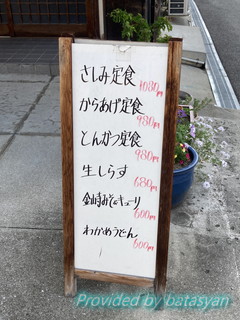 さしみ定食
1080円
からあげ定食
930円
とんかつ定食
930円
生しらす
680円
金山寺みそ&キューリ
600円
わかめうどん
600円
Provided by batasyan